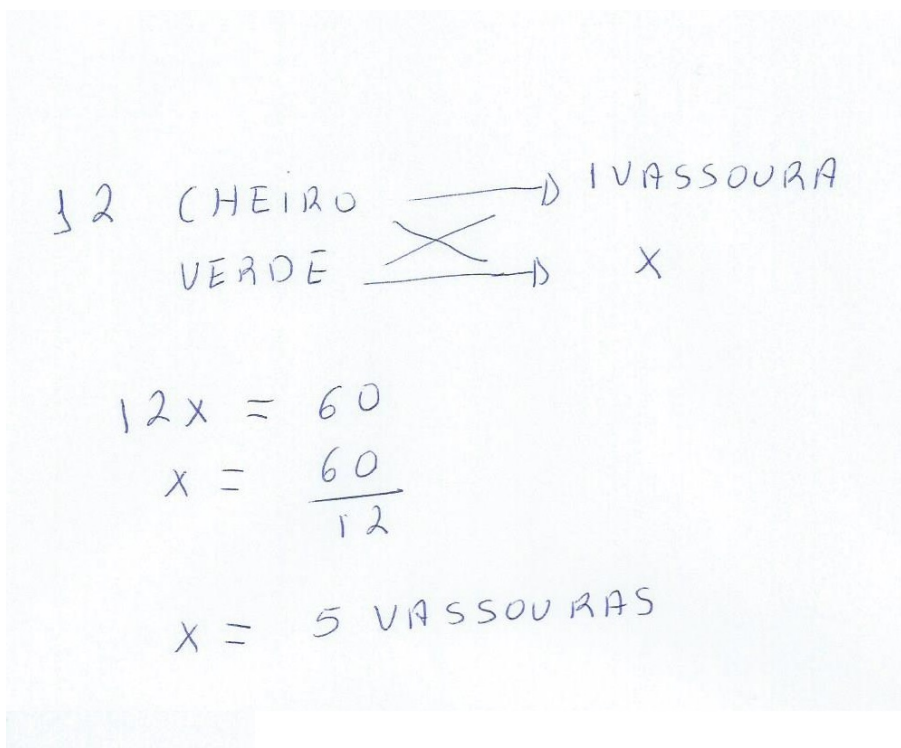 12 CHEIRO 1 VASSOURA
VERDE X
12x = 60
x = 60
12
x = 5 VASSOURAS